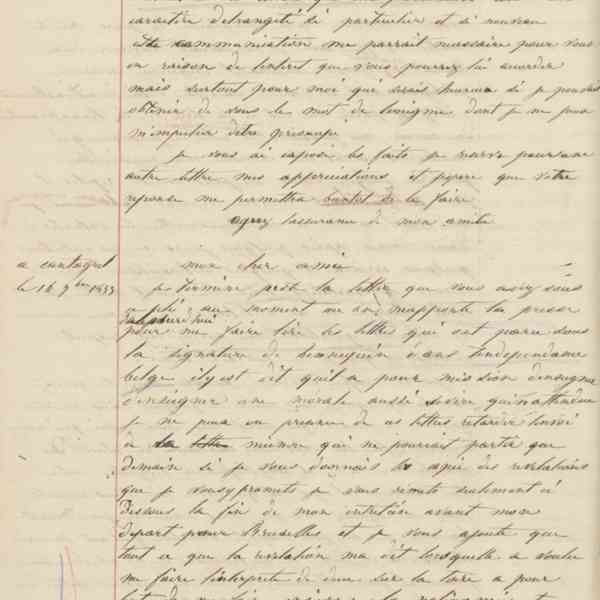 caractère d'etrangeté si particulier et si nouveau
communication me parrait nessaire pour vous
en raison de linteret que vous pourrez lui acorder
mais surtout pour moi qui serais hureux si je pouvais
obtenir de vous le mot de lenigme dont je ne puis
m'empecher detre preocupé
je vous ai exposé les faits je reserve pour une
autre lettre mes appreciations et j'espere que votre
reponse me permettra bientot de le faire
agreez lassurance de mon amitie
a cantagrel
le 16 9bre 1853
mon cher amie
je termine presque la lettre que vous avez sous
ce pli au moment ou on mapporte la presse
pour me faire lire les lettres qui ont paru sous
la signature de hennequin dans lindependance
belge il y est dit quil a pour mission denseigner
denseigner une morale aussi severe quinattendue
je ne peux en presence de ces lettres retarder lenvoi
de la lettre mienne qui ne pourrait partir que
demain si je vous donnais la copie des revelations
que je vous promets je vous reunis seulement ci
dessous la fin de mon entretien avant mon
depart pour Bruxelles et je vous ajoute que
tout ce que la revelation ma dit lorsquelle a voulu
me faire linterprete de dieu sur la terre a pour